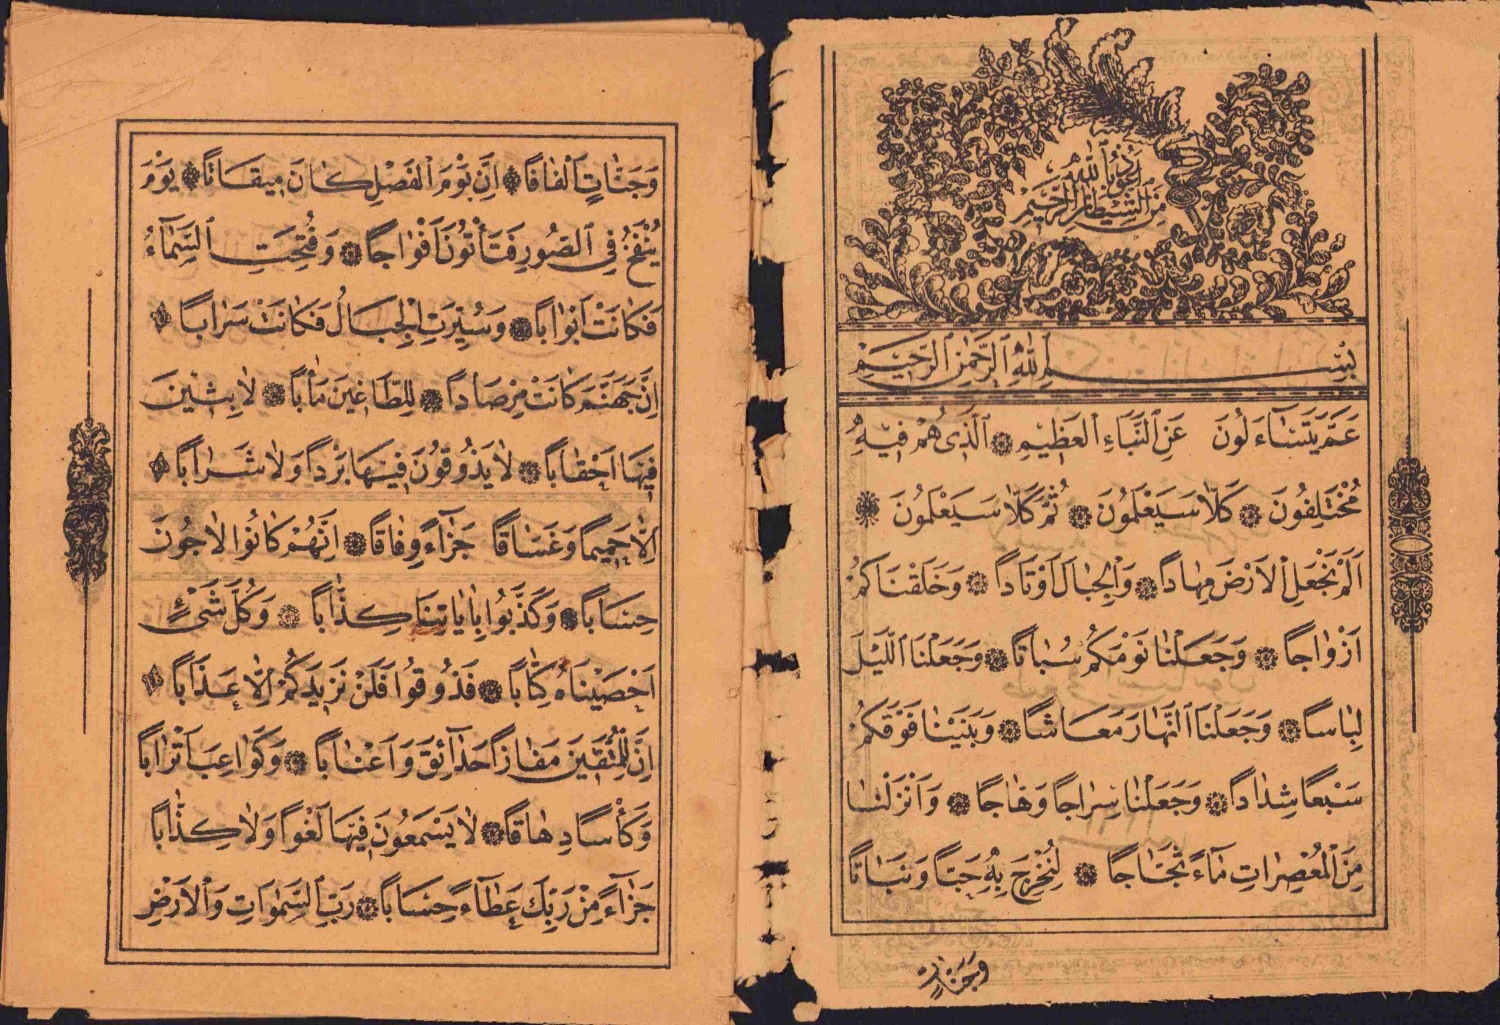 اَعُوذُ بِاللّٰهِ
مِنَ الشَّيْطَانِ الرَّجِيمِ
بِسْمِ اللّٰهِ الرَّحْمٰنِ الرَّحِيمِ
عَمَّ يَتَسَاءَلُونَ عَنِ النَّبَاءِ الْعَظِيمِ ۞ اَلَّذِى هُمْ فِيهِ
مُخْتَلِفُونَ ۞ كَلَّا سَيَعْلَمُونَ ۞ ثُمَّ كَلَّا سَيَعْلَمُونَ ۞
اَلَمْ نَجْعَلِ الْاَرْضَ مِهَادًا ۞ وَالْجِبَالَ اَوْتَادًا ۞ وَخَلَقْنَاكُمْ
اَزْوَاجًا ۞ وَجَعَلْنَا نَوْمَكُمْ سُبَاتًا ۞ وَجَعَلْنَا الَّيْلَ
لِبَاسًا ۞ وَجَعَلْنَا النَّهَارَ مَعَاشًا ۞ وَبَنَيْنَا فَوْقَكُمْ
سَبْعًا شِدَادًا ۞ وَجَعَلْنَا سِرَاجًا وَهَّاجًا ۞ وَاَنْزَلْنَا
مِنَ الْمُعْصِرَاتِ مَاءً ثَجَّاجًا ۞ لِنُخْرِجَ بِهِ حَبًّا وَنَبَاتًا
وَجَنَّاتٍ
وَجَنَّاتٍ اَلْفَافًا ۞ اِنَّ يَوْمَ الْفَصْلِ كَانَ مِيقَاتًا ۞ يَوْمَ
يُنْفَخُ فِى الصُّورِ فَتَأْتُونَ اَفْوَاجًا ۞ وَفُتِحَتِ السَّمَاءُ
فَكَانَتْ اَبْوَابًا ۞ وَسُيِّرَتِ الْجِبَالُ فَكَانَتْ سَرَابًا ۞
اِنَّ جَهَنَّمَ كَانَتْ مِرْصَادًا ۞ لِلطَّاغِينَ مَاٰبًا ۞ لَابِثِينَ
فِيهَا اَحْقَابًا ۞ لَا يَذُوقُونَ فِيهَا بَرْدًا وَلَا شَرَابًا ۞
اِلَّا حَمِيمًا وَغَسَّاقًا جَزَاءً وِفَاقًا ۞ اِنَّهُمْ كَانُوا لَا يَرْجُونَ
حِسَابًا ۞ وَكَذَّبُوا بِاٰيَاتِنَا كِذَّابًا ۞ وَكُلَّ شَىْءٍ
اَحْصَيْنَاهُ كِتَابًا ۞ فَذُوقُوا فَلَنْ نَزِيدَكُمْ اِلَّا عَذَابًا ۞
اِنَّ لِلْمُتَّقِينَ مَفَازًا حَدَائِقَ وَاَعْنَابًا ۞ وَكَوَاعِبَ اَتْرَابًا
وَكَأْسًا دِهَاقًا ۞ لَا يَسْمَعُونَ فِيهَا لَغْوًا وَلَا كِذَّابًا
جَزَاءً مِنْ رَبِّكَ عَطَاءً حِسَابًا ۞ رَبِّ السَّمٰوَاتِ وَالْاَرْضِ